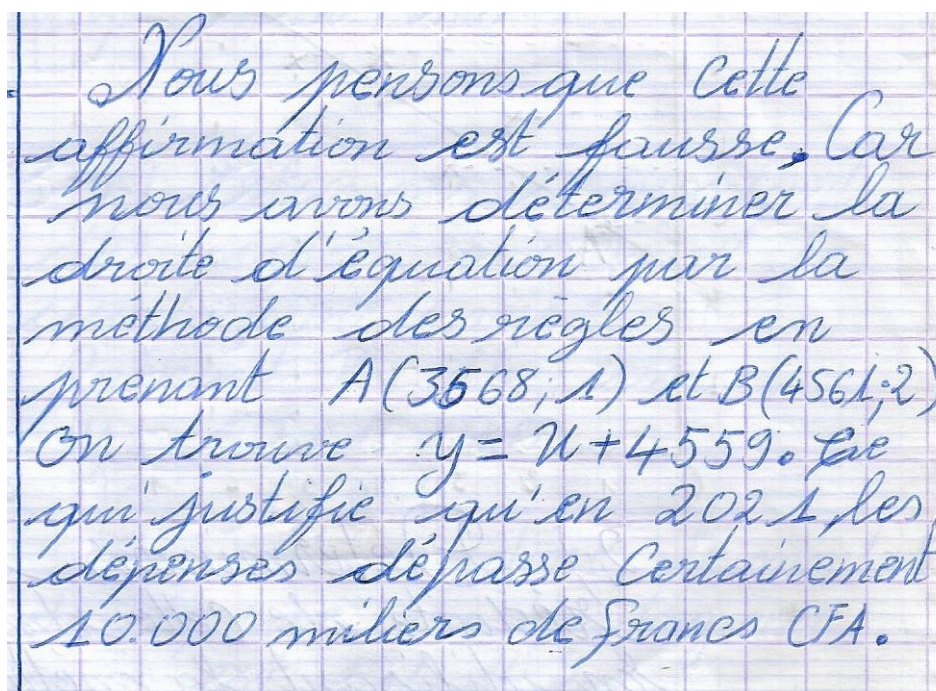 Nous pensons que Cette
affirmation est fausse. Car
nous avons déterminer la
droite d'équation par la
méthode des règles en
prenant A(3568; 1) et B(4561; 2)
On trouve y = x + 4559. Ce
qui justifie qu'en 2021 les
dépenses dépasse Certainement
10.000 miliers de francs CFA.